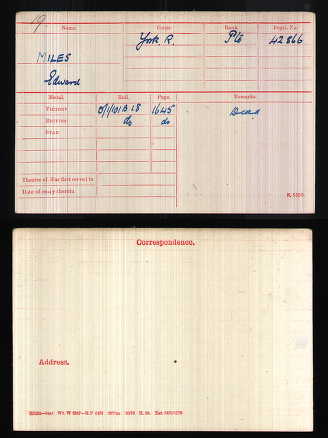 19
Name. Corps. Rank. Regtl. No.
MILES York R. Pte 42866
Edward
Medal. Roll. Page. Remarks.
VICTORY O/1/101B18 1645 Dead
BRITISH do do
STAR
Theatre of War first served in
Date of entry therein
K. 1380.
Correspondence.
Address.